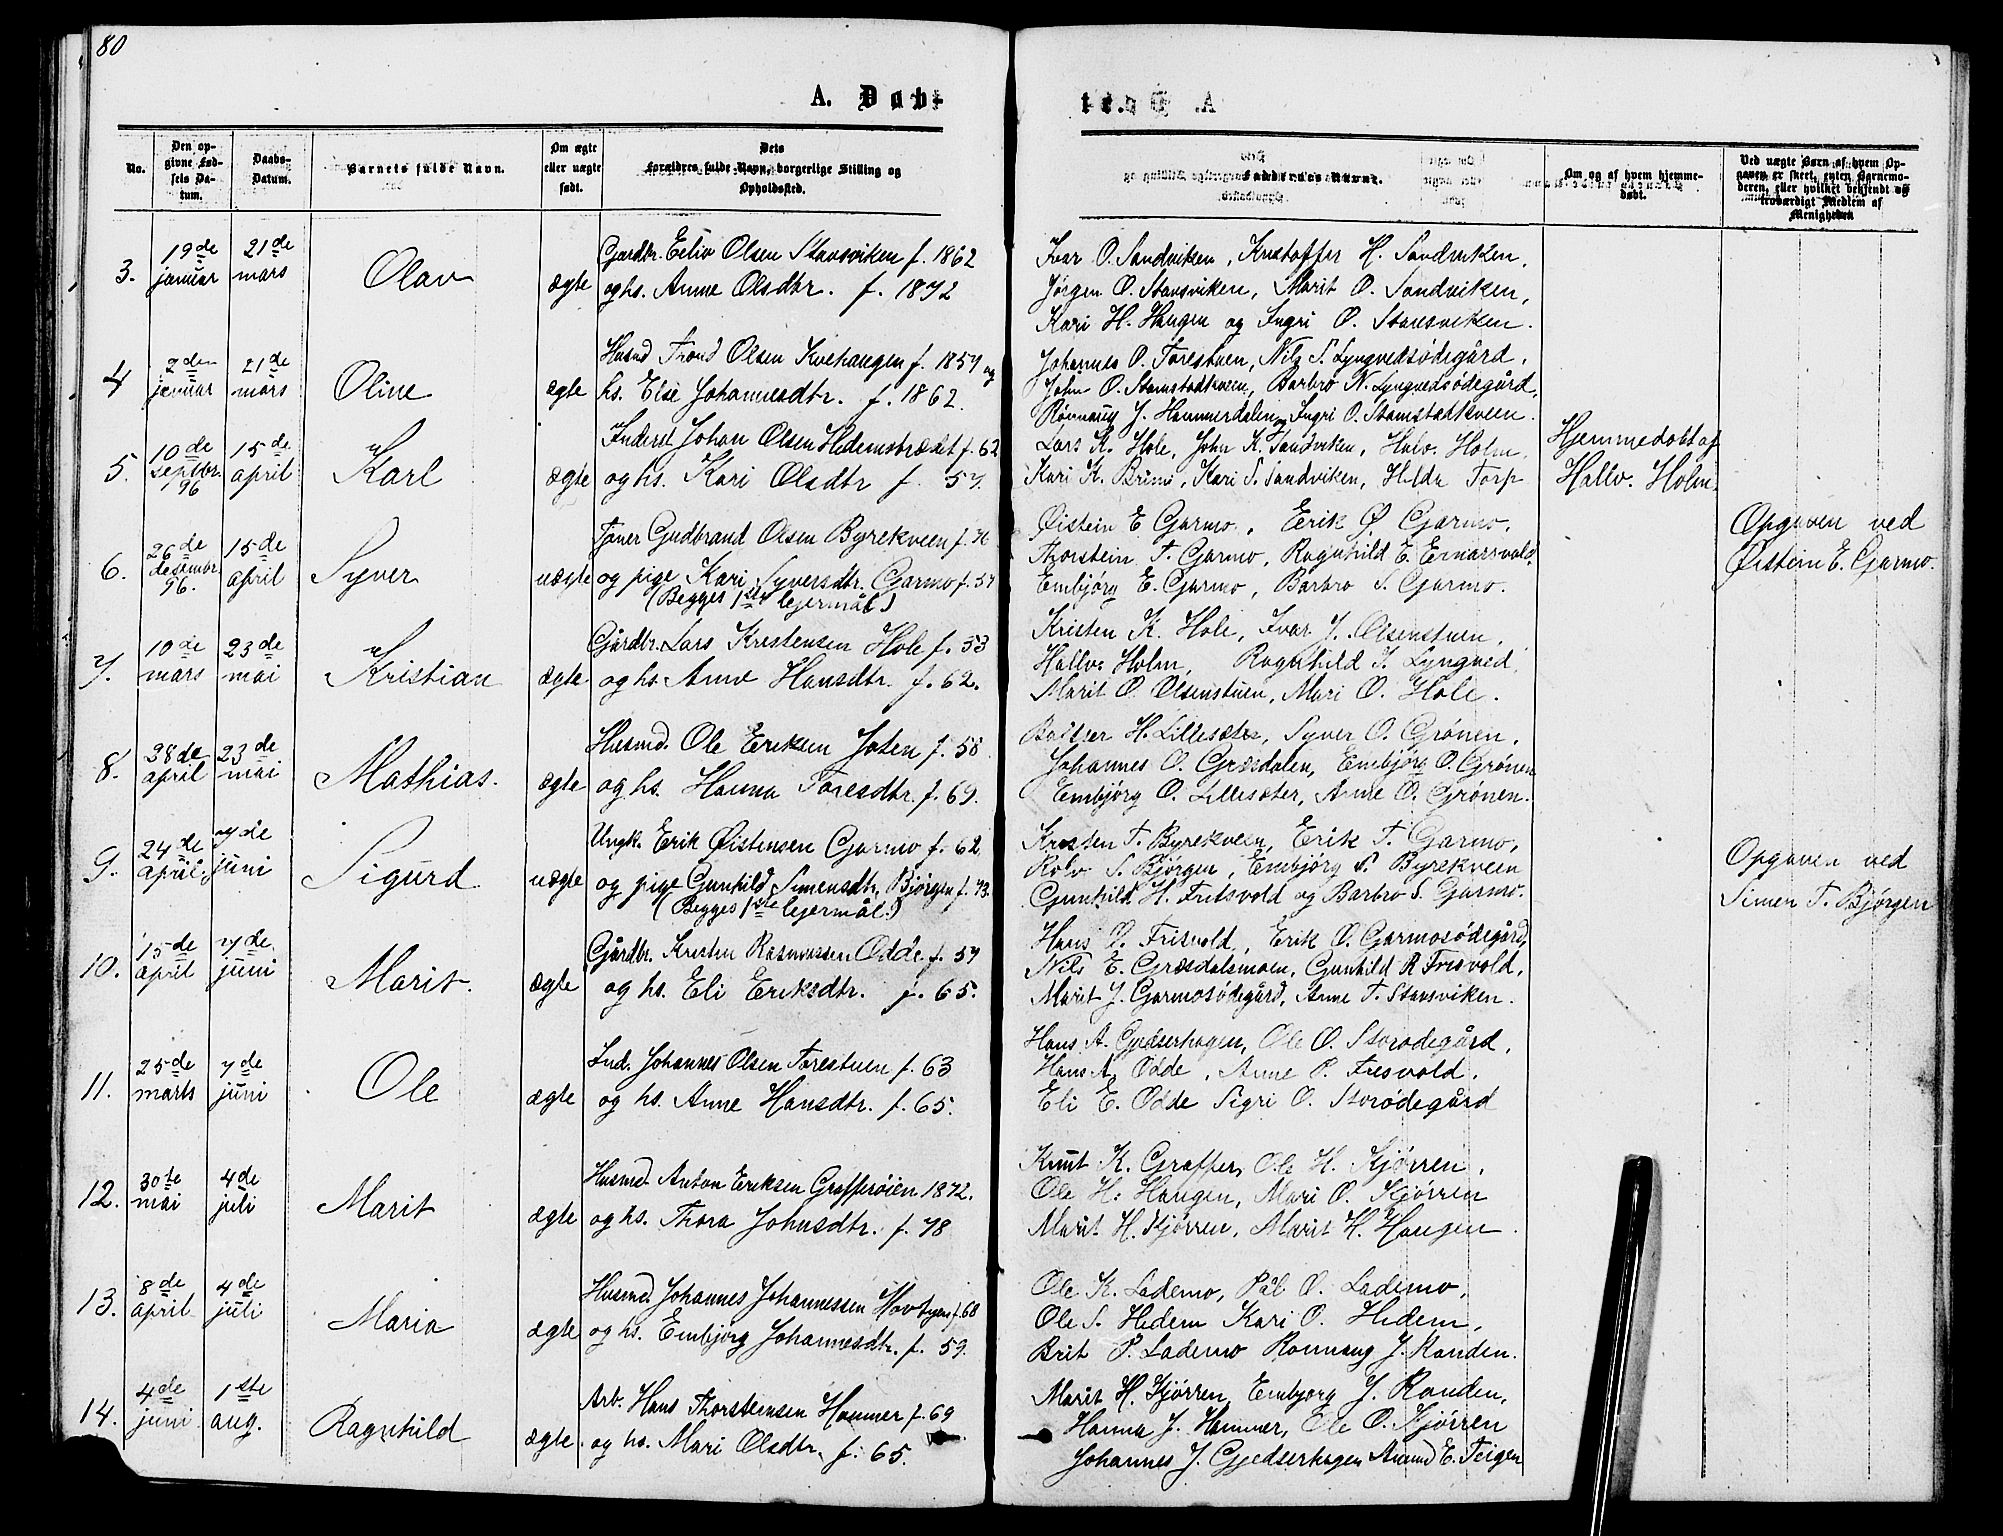 80
A. Døbte.
No.
Den opgivne Fødsels Datum.
Daabs-Datum.
Barnets fulde Navn.
Om ægte eller uægte født.
Dets Forældres fulde Navn, borgerlige Stilling og Opholdssted.
Faddernes Navne.
Om og af hvem hjemmedøbt.
Ved uægte Børn af hvem Opgaven er skeet, enten Barnemoderen, eller hvilket bekjendt og troværdigt Medlem af Menigheden
3. 19de januar 21de mars Olav ægte
Gardbr. Eiliv Olsen Stavsviken f. 1862
og hs. Anne Olsdtr. f. 1872
Ivar O. Sandviken, Kristoffer H. Sandviken,
Jørgen O. Stavsviken, Marit O. Sandviken,
Kari H. Haugen og Ingri O. Stavsviken.
4 2den januar 21de mars Oline ægte
Husmd Trond Olsen Kvehaugen f. 1857 og
hs. Else Johannesdtr. f. 1862.
Johannes O. Torestuen, Nils S. Lyngvedsødegård,
John O. Stamstadkveen, Barbro N. Lyngvedsødegård,
Rønnaug J. Hammerdalen, Ingri O. Stamstadkveen.
5. 10de septbr. 96 15de april Karl ægte
Inderst Johan Olsen Hedemstrædet f. 62
og hs. Kari Olsdtr f. 57.
Lars K. Hole, John K. Sandviken, Halv. Holm,
Kari K. Brimi, Kari S. Sandviken, Hilda Torp
Hjemmedøbt af
Hallv. Holm.
6. 26de desembr. 96. 15de april Syver uægte
Tjener Gudbrand Olsen Byrekveen f. 76
og pige Kari Syversdtr. Garmo f. 57
(Begges 1ste lejermål)
Øistein E Garmo, Erik Ø Garmo,
Thorstein T. Garmo, Ragnhild E. Einarsvold,
Embjørg E. Garmo, Barbro S. Garmo.
Opgaven ved
Øistein E. Garmo.
7. 10de mars 23de mai Kristian ægte
Gårdbr. Lars Kristensen Hole f. 53
og hs. Anne Hansdtr. f. 62.
Kristen K. Hole, Ivar J. Olsenstuen,
Hallv. Holm, Ragnhild I. Lyngved,
Marit O. Olsenstuen, Mari O. Hole.
8. 28de april 23de mai Mathias. ægte
Husmd. Ole Eriksen Joten f. 58
og hs. Hanna Toresdtr. f. 69.
H. Lillesæter, Syver O. Grønen,
Johannes O. Græsdalen, Embjørg O. Grønen
Embjørg O. Lillesæter, Anne O. Grønen.
9. 24de april. 7de juni Sigurd uægte
Ungk. Erik Øistensen Garmo f. 62
og pige Gunhild Simensdtr. Bjørgen f. 73.
(Begges 1ste lejermål.)
Kristen T. Byrekveen, Erik T. Garmo,
Rolv S. Bjørgen, Embjørg S. Byrekveen
Gunhild H. Frisvold og Barbro S. Garmo.
Opgaven ved
Simen T. Bjørgen
10. 15de april 7de juni Marit. ægte
Gårdbr. Kristen Rasmussen Odde f. 57
og hs. Eli Eriksdtr. f. 65.
Hans O. Frisvold, Erik O. Garmosødegård,
Nils E. Græsdalsmoen, Gunhild R Frisvold,
Marit J. Garmosødegård, Anne T. Stavsviken.
11. 25de marts 7de juni Ole ægte
Ind. Johannes Olsen Torestuen f. 63
og hs. Anne Hansdtr. f. 65.
Hans A. Gjedserhagen, Ole O. Storødegård,
Hans A. Odde, Anne P. Frisvold,
Eli E. Odde Sigri O. Storødegård
12. 30te mai 4de juli Marit ægte
Husmd. Anton Eriksen Grafferøien 1872.
og hs. Thora Johnsdtr. f. 78
Knut K. Graffer, Ole H. Kjørren,
Ole H. Haugen, Mari O. Kjørren
Marit H. Kjørren, Marit H. Haugen.
13. 8de april 4de juli Maria ægte
Husmd. Johannes Johannessen f. 68
og hs. Embjørg Johannesdtr. f. 59.
Ole K. Lademo, Pål O. Lademo,
Ole S. Hedem Kari O. Hedem,
Brit P. Lademo Rønnaug J. Randen.
14. 4de juni 1ste aug. Ragnhild ægte
Arb. Hans Thorsteinsen Hammer f. 69
og hs. Mari Olsdtr. f. 65.
Marit H. Kjørren, Embjørg J. Randen,
Hanna J. Hammer, Ole O. Kjørren
Johannes J. Gjedserhagen Amund E. Teigen